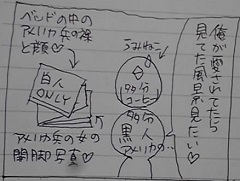 俺が愛されてたら
見てた風景が見たい♡
うみねこ
多分
コーヒー
多分
黒人
アメリカの…
ベッドの中の
アメリカ兵の裸
と顔♡
白人
ONLY
アメリカ兵の女の
開脚写真♡